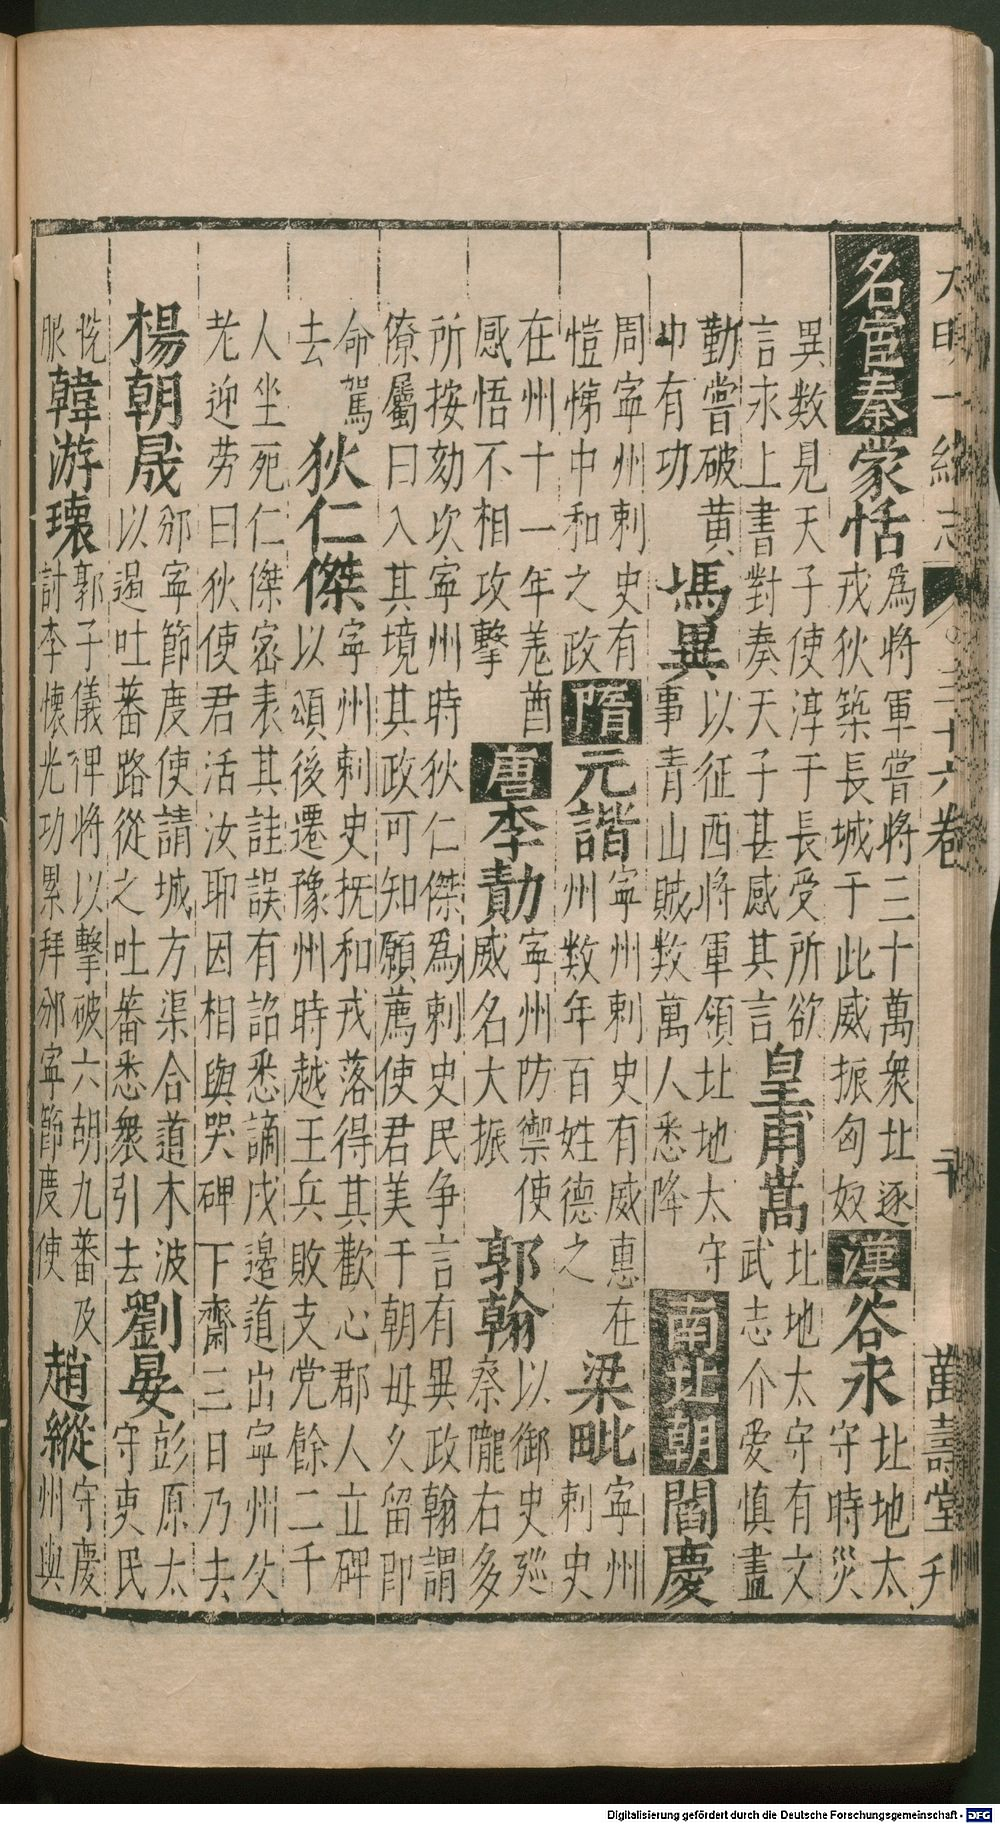 大明一統志 三十六卷 萬壽堂
名宦秦蒙恬
為將軍嘗將三十萬衆北逐
戎狄築長城于此威振匈奴
漢谷永
北地太
守時災
異數見天子使淳于長受所欲
言永上書對奏天子甚感其言
皇甫嵩
北地太守有文
武志介愛慎盡
勤嘗破黃
巾有功
馮異
以征西將軍領北地太守
事青山賊數萬人悉降
南北朝閻慶
周寧州刺史有
愷悌中和之政
隋元諧
寧州刺史有威惠在
州數年百姓德之
梁毗
寧州
刺史
在州十一年羗酋
感悟不相攻擊
唐李勣
寧州防禦使
威名大振
郭翰
以御史廵
察隴右多
所按劾次寧州時狄仁傑為刺史民争言有異政翰謂
僚屬曰入其境其政可知願薦使君美于朝毋久留即
命駕
去
狄仁傑
寧州刺史抚和戎落得其歡心郡人立碑
以頌後遷豫州時越王兵敗支党餘二千
人坐死仁傑宻表其詿誤有詔悉謫戍邊道出寧州父
老迎劳曰狄使君活汝耶因相與哭碑下齋三日乃去
楊朝晟
邠寧節度使請城方渠合道木波
以遏吐蕃路從之吐蕃悉衆引去
劉晏
彭原太
守吏民
悦
服
韓游瓌
郭子儀裨將以擊破六胡九蕃及
討李懷光功累拜邠寧節度使
趙縱
守慶
州與
Digitalisierung gefördert durch die Deutsche Forschungsgemeinschaft - DFG